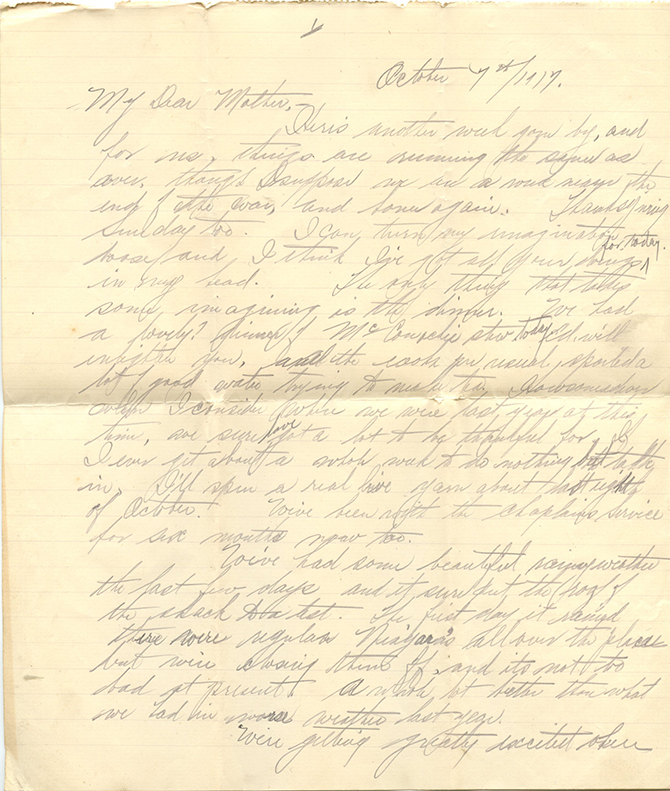 October 7th/1917.
My Dear Mother,
Here's another week gone by, and
for me, things are running the same as
ever, though I suppose we are a week nearer the
end of the war, and home again. Thanksgiving
Sunday too. I can turn my imagination
loose, and I think I've got all your doings for today
in my head. The only thing that takes
some imagining is the dinner. We had
a lovely? dinner of McConochie stew today
enlighten you, and the cooks per usual, spoiled a
lot of good water trying to make
When I consider where we were last year at this
time, we sure have got a lot to be thankful for. If
I ever get about a whole week to do nothing but talk
in, I'll spin a real live yarn about last eighth
of October. We've been with the chaplains service
for six months now too.
We've had some beautiful rainy weather
the last few days, and it sure put the roof of
the shack to a test. The first day it rained
there were regular Niagaras all over the place
but we're chasing them off, and it's not too
bad at present. A whole lot better than what
we had in worse weather last year.
We're getting greatly excited over